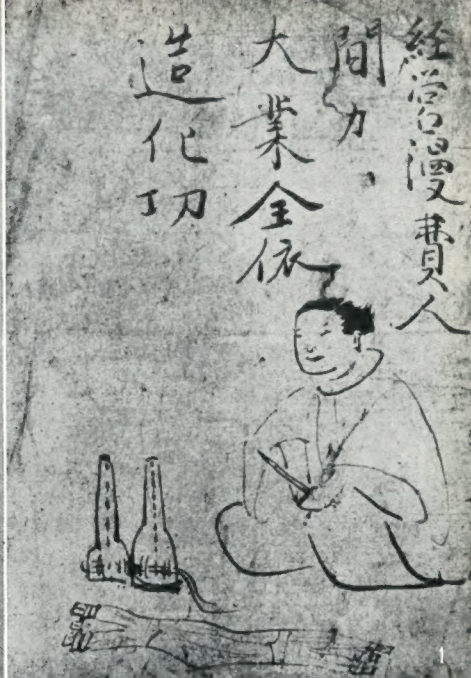 経営漫費人
間力、
大業全依
造化功
1